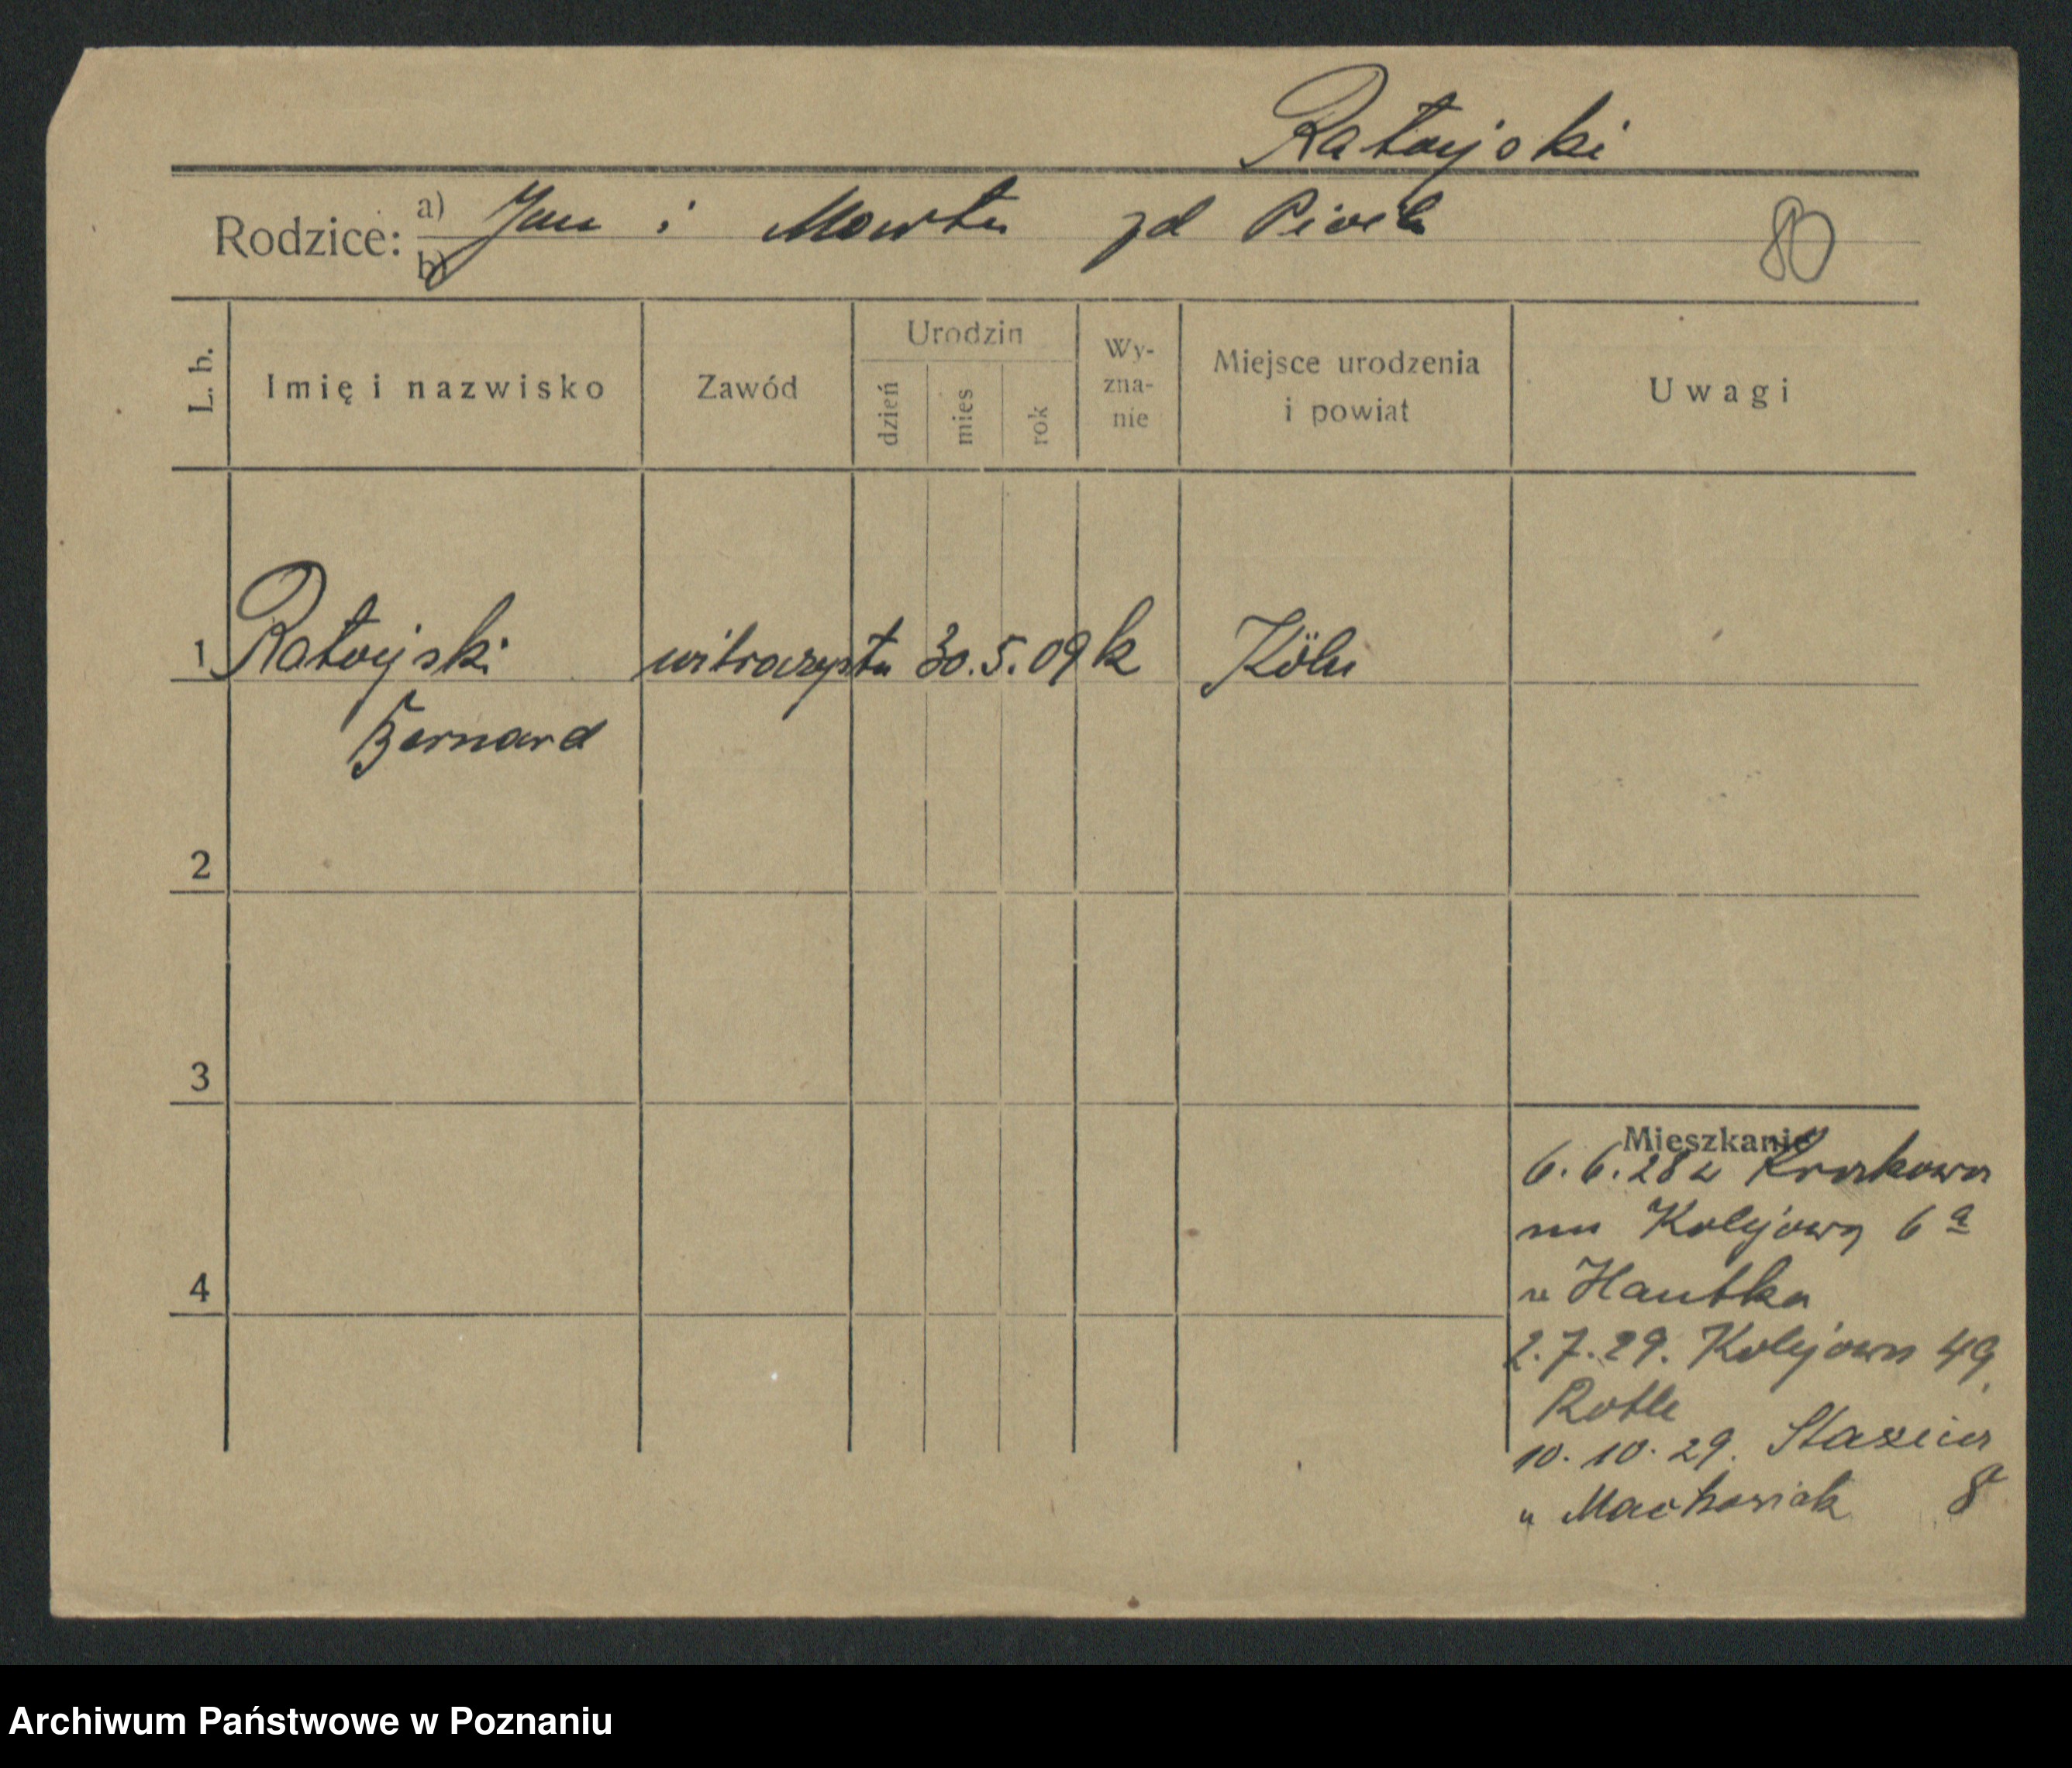 Ratajski
Rodzice: a) Jan i Marta zd
b)
80
L. b.
Imię i nazwisko
Zawód
Urodzin
dzień
mies
rok
Wy-
zna-
nie
Miejsce urodzenia
i powiat
Uwagi
1 Ratajski witrażysta 30.5.09 k Köln
Bernard
2
3
4
Mieszkanie
6.6.28 z Krakowa
na Kolejową 6a
u Hantka
2.7.29. Kolejowa 49
10.10.29. Staszica
u Maćkowiak 8
Archiwum Państwowe w Poznaniu